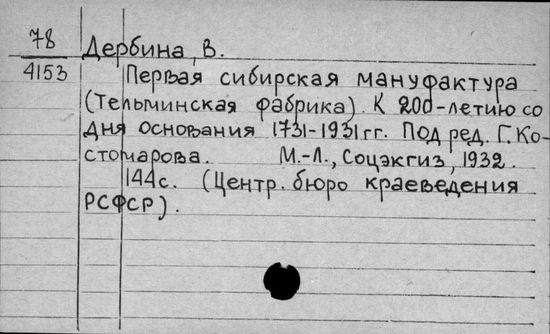 78
4153
Дербина, В.
Первая сибирская мануфактура
(Тельминская фабрика). К 200-летию со
дня основания 1731-1931 гг. Под ред. Г. Ко-
стомарова. М.-Л., Соцэкгиз, 1932.
144 с. (Центр. бюро краеведения
РСФСР).